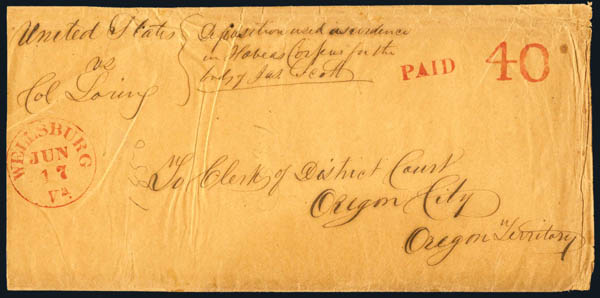 United States
vs
Col Loring
Deposition used in evidence
in Habeas Corpus for the
body of Jas. Scott
PAID 40
WELLSBURG
JUN
17
Va.
1850
To Clerk of District Court
Oregon City
Oregon Territory